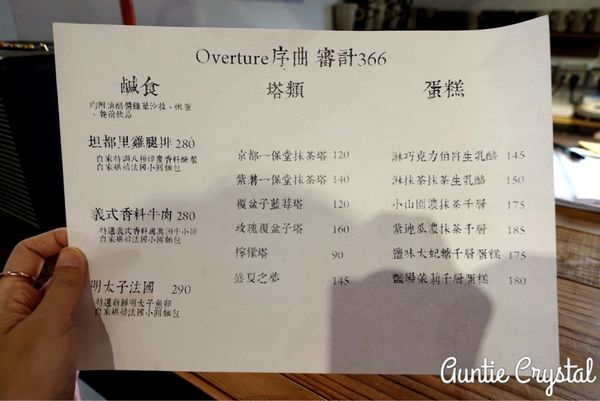 Overture序曲 審計366
鹹食
均附油醋醬綠葉沙拉、嫩蛋
、餐前飲品
坦都里雞腿排 280
自家特調八種印度香料醃製
自家烘焙法國小圓麵包
義式香料牛肉 280
特選義式香料佩澳洲牛小排
自家烘焙法國小圓麵包
明太子法國 290
特選新鮮明太子魚卵
自家烘焙法國小圓麵包
塔類
京都一保堂抹茶塔 120
紫薯一保堂抹茶塔 140
覆盆子藍莓塔 120
玫瑰覆盆子塔 160
檸檬塔 90
盛夏之夢 145
蛋糕
淋巧克力伯爵生乳酪 145
淋抹茶抹茶生乳酪 150
小山園濃抹茶千層 175
紫地瓜濃抹茶千層 185
鹽味太妃糖千層蛋糕 175
豔陽茉莉千層蛋糕 180
Auntie Crystal